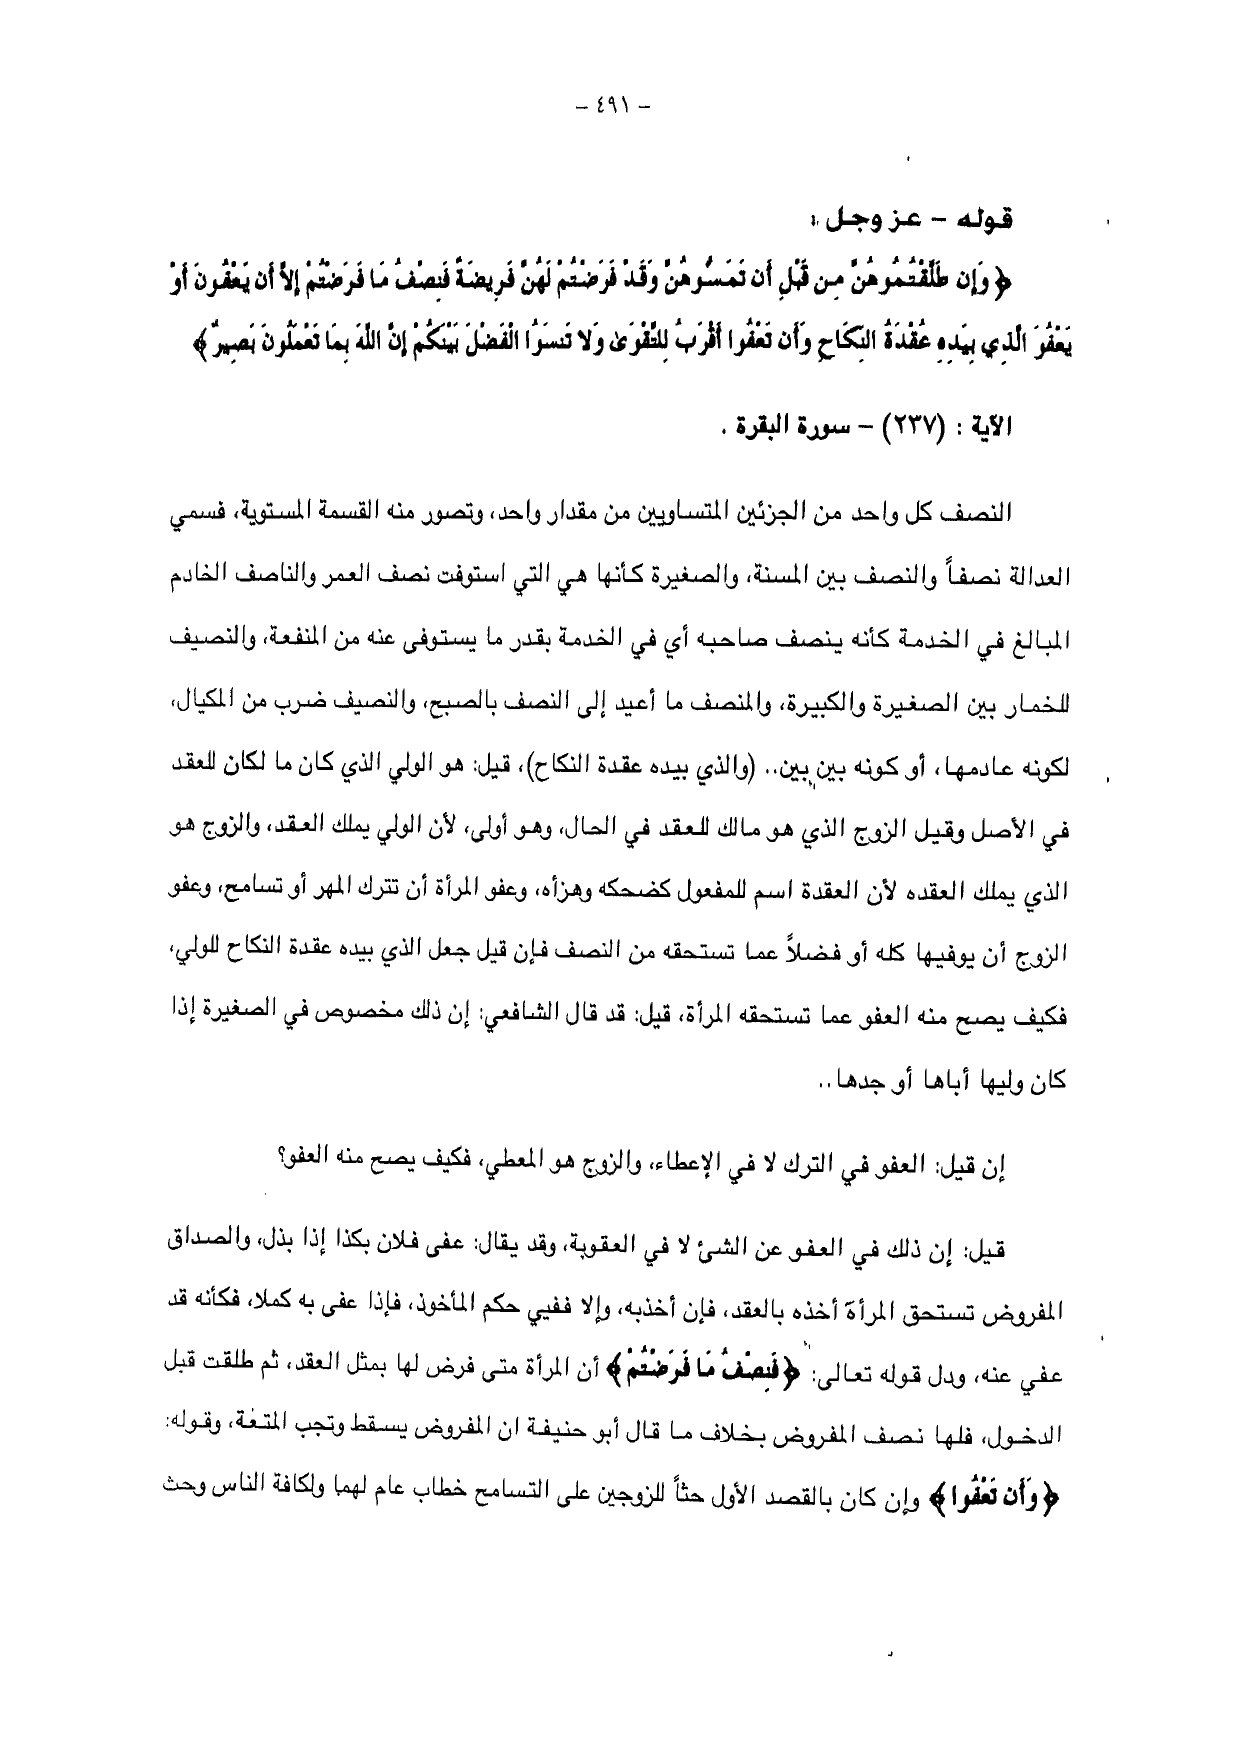 - ٤٩١ -
قوله - عز وجل :
﴿ وَإِن طَلَّقْتُمُوهُنَّ مِن قَبْلِ أَن تَمَسُّوهُنَّ وَقَدْ فَرَضْتُمْ لَهُنَّ فَرِيضَةً فَنِصْفُ مَا فَرَضْتُمْ إِلاَّ أَن يَعْفُونَ أَوْ
يَعْفُوَ الَّذِي بِيَدِهِ عُقْدَةُ النِّكَاحِ وَأَن تَعْفُوا أَقْرَبُ لِلتَّقْوَىٰ وَلا تَنسَوُا الْفَضْلَ بَيْنَكُمْ إِنَّ اللَّهَ بِمَا تَعْمَلُونَ بَصِيرٌ ﴾
الآية : (٢٣٧) - سورة البقرة .
النصف كل واحد من الجزئين المتساويين من مقدار واحد، وتصور منه القسمة المستوية، فسمي
العدالة نصفاً والنصف بين المسنة، والصغيرة كأنها هي التي استوفت نصف العمر والناصف الخادم
المبالغ في الخدمة كأنه ينصف صاحبه أي في الخدمة بقدر ما يستوفى عنه من المنفعة، والنصيف
للخمار بين الصغيرة والكبيرة، والمنصف ما أعيد إلى النصف بالصبح، والنصيف ضرب من المكيال،
لكونه عادمها، أو كونه بين بين.. (والذي بيده عقدة النكاح)، قيل: هو الولي الذي كان ما لكان للعقد
في الأصل وقيل الزوج الذي هو مالك للعقد في الحال، وهو أولى، لأن الولي يملك العقد، والزوج هو
الذي يملك العقده لأن العقدة اسم للمفعول كضحكه وهزأه، وعفو المرأة أن تترك المهر أو تسامح، وعفو
الزوج أن يوفيها كله أو فضلاً عما تستحقه من النصف فإن قيل جعل الذي بيده عقدة النكاح للولي،
فكيف يصح منه العفو عما تستحقه المرأة، قيل: قد قال الشافعي: إن ذلك مخصوص في الصغيرة إذا
كان وليها أباها أو جدها..
إن قيل: العفو في الترك لا في الإعطاء، والزوج هو المعطي، فكيف يصح منه العفو؟
قيل: إن ذلك في العفو عن الشئ لا في العقوبة، وقد يقال: عفى فلان بكذا إذا بذل، والصداق
المفروض تستحق المرأة أخذه بالعقد، فإن أخذبه، وإلا ففيي حكم المأخوذ، فإذا عفى به كملا، فكأنه قد
عفي عنه، ودل قوله تعالى: ﴿ فَنِصْفُ مَا فَرَضْتُمْ ﴾ أن المرأة متى فرض لها بمثل العقد، ثم طلقت قبل
الدخول، فلها نصف المفروض بخلاف ما قال أبو حنيفة ان المفروض يسقط وتجب المتعة، وقوله:
﴿ وَأَن تَعْفُوا ﴾ وإن كان بالقصد الأول حثاً للزوجين على التسامح خطاب عام لهما ولكافة الناس وحث